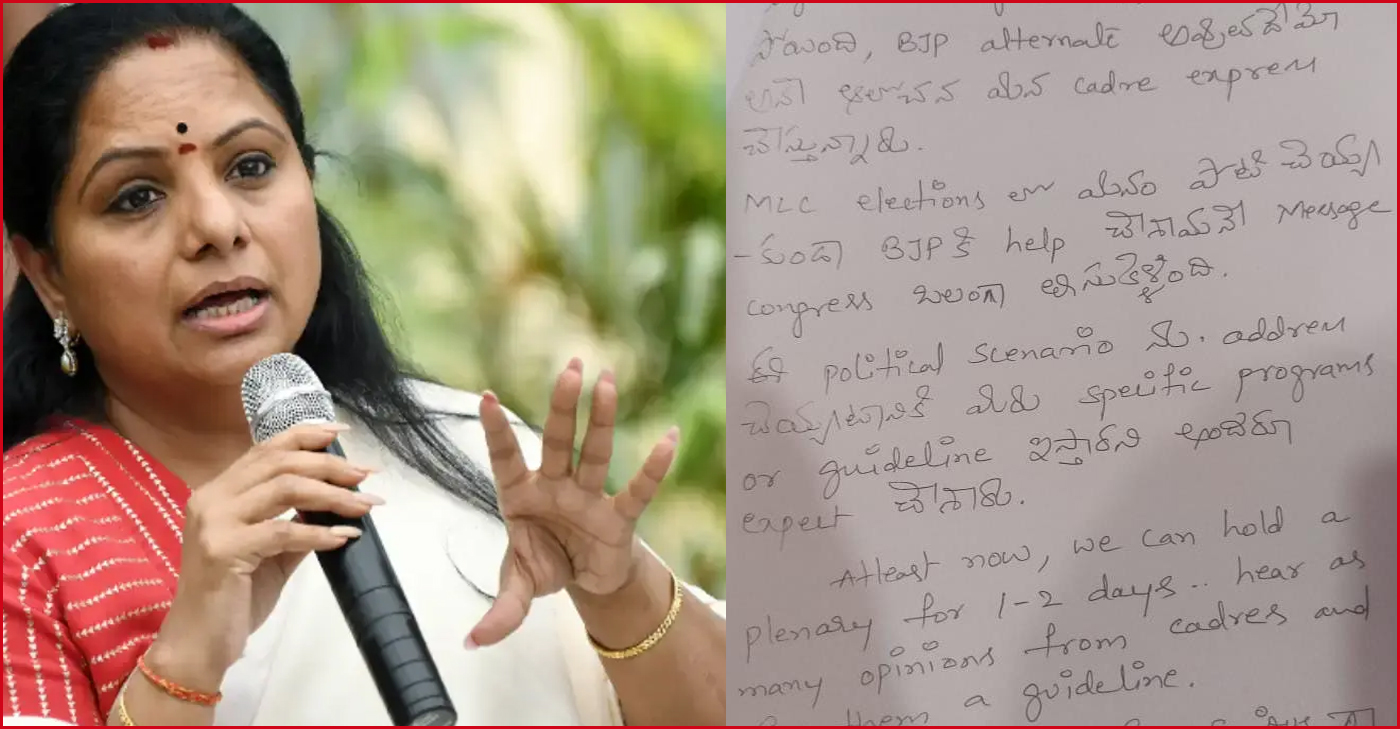 పోయింది, BJP alternate అవుతుందేమో
అనే ఆలోచన మన cadre express
చేస్తున్నారు.
MLC elections లో మనం పోటీ చెయ్య
-కుండా BJP కి help చేశామనే Message
congress బలంగా తీసుకెళ్ళింది.
ఈ political scenario ను. address
చెయ్యటానికి మీరు specific programs
or guideline ఇస్తారని అందరూ
expect చేశారు.
Atleast now, we can hold a
plenary for 1-2 days.. hear as
many opinions from cadres and
them a guideline.